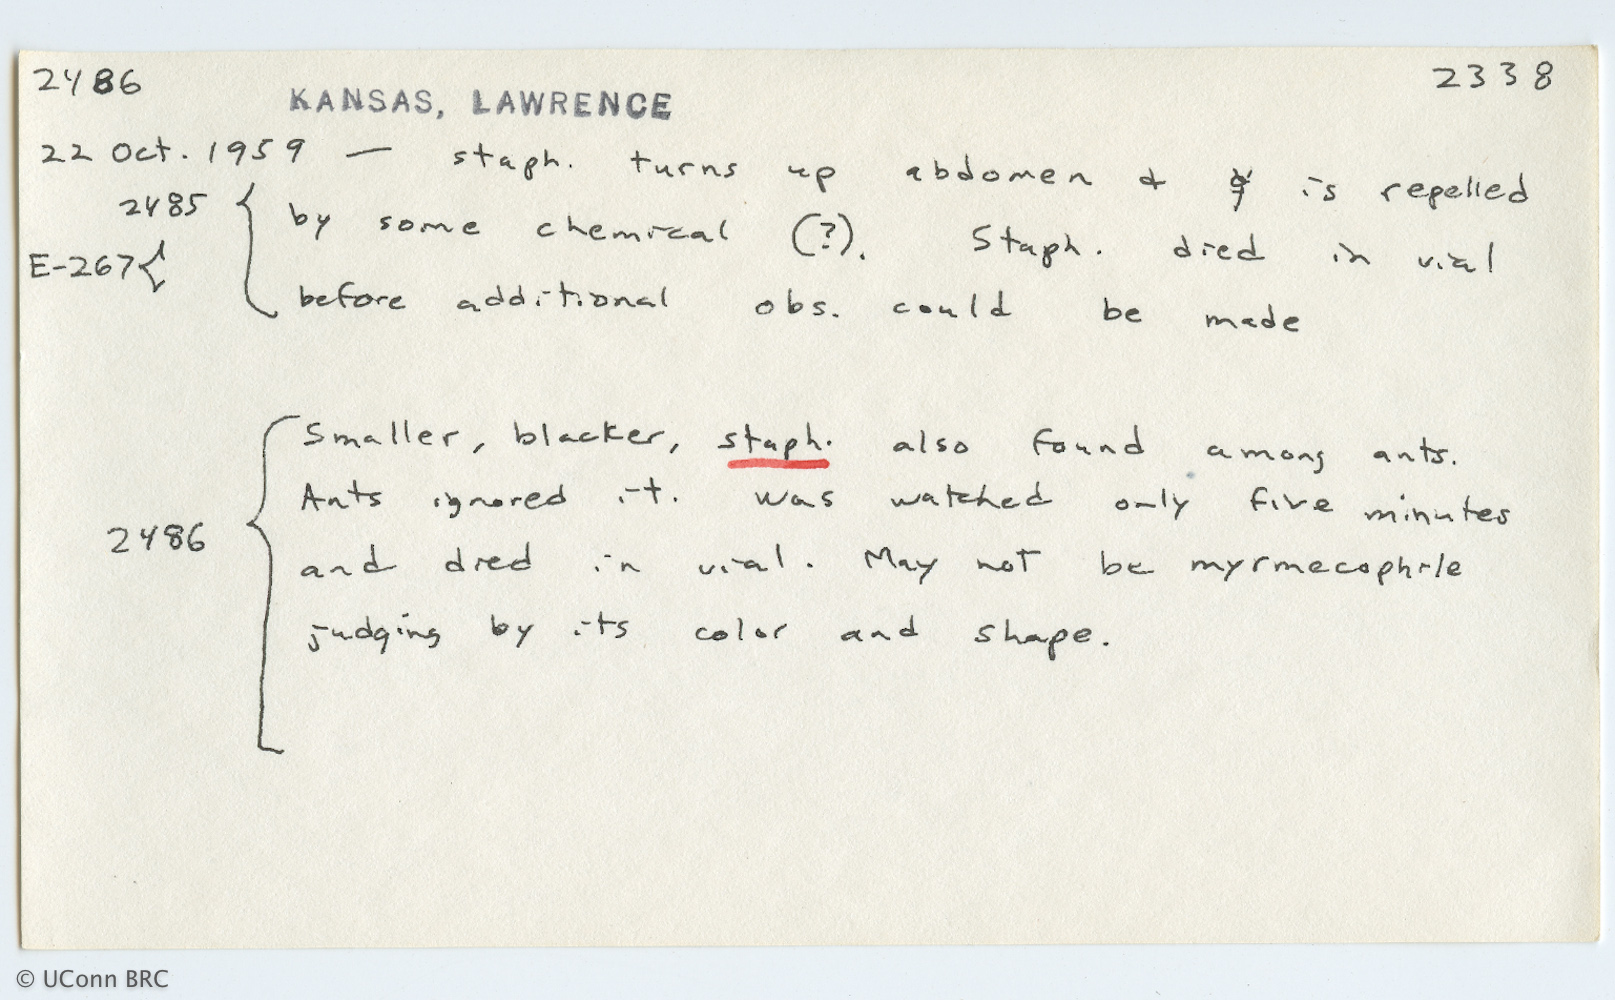 2486
2338
KANSAS, LAWRENCE
22 Oct. 1959 — staph. turns up abdomen & ☿ is repelled
2485 { by some chemical (?). Staph. died in vial
E-267 {
before additional obs. could be made
Smaller, blacker, staph. also found among ants.
Ants ignored it. Was watched only five minutes
2486 {
and died in vial. May not be myrmecophile
judging by its color and shape.
© UConn BRC